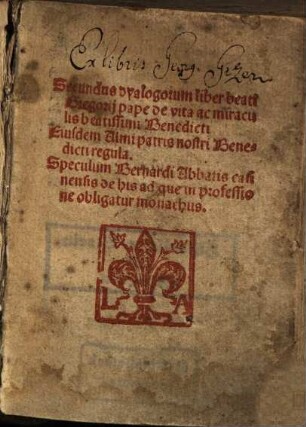 Ex libris Georg.
Secundus dyalogorum liber beati
Gregorij pape de vita ac miracu
lis beatissimi Benedicti
Eiusdem Almi patris nostri Bene-
dicti regula.
Speculum Bernardi Abbatis casi
nensis de his ad que in professio
ne obligatur monachus.
L A